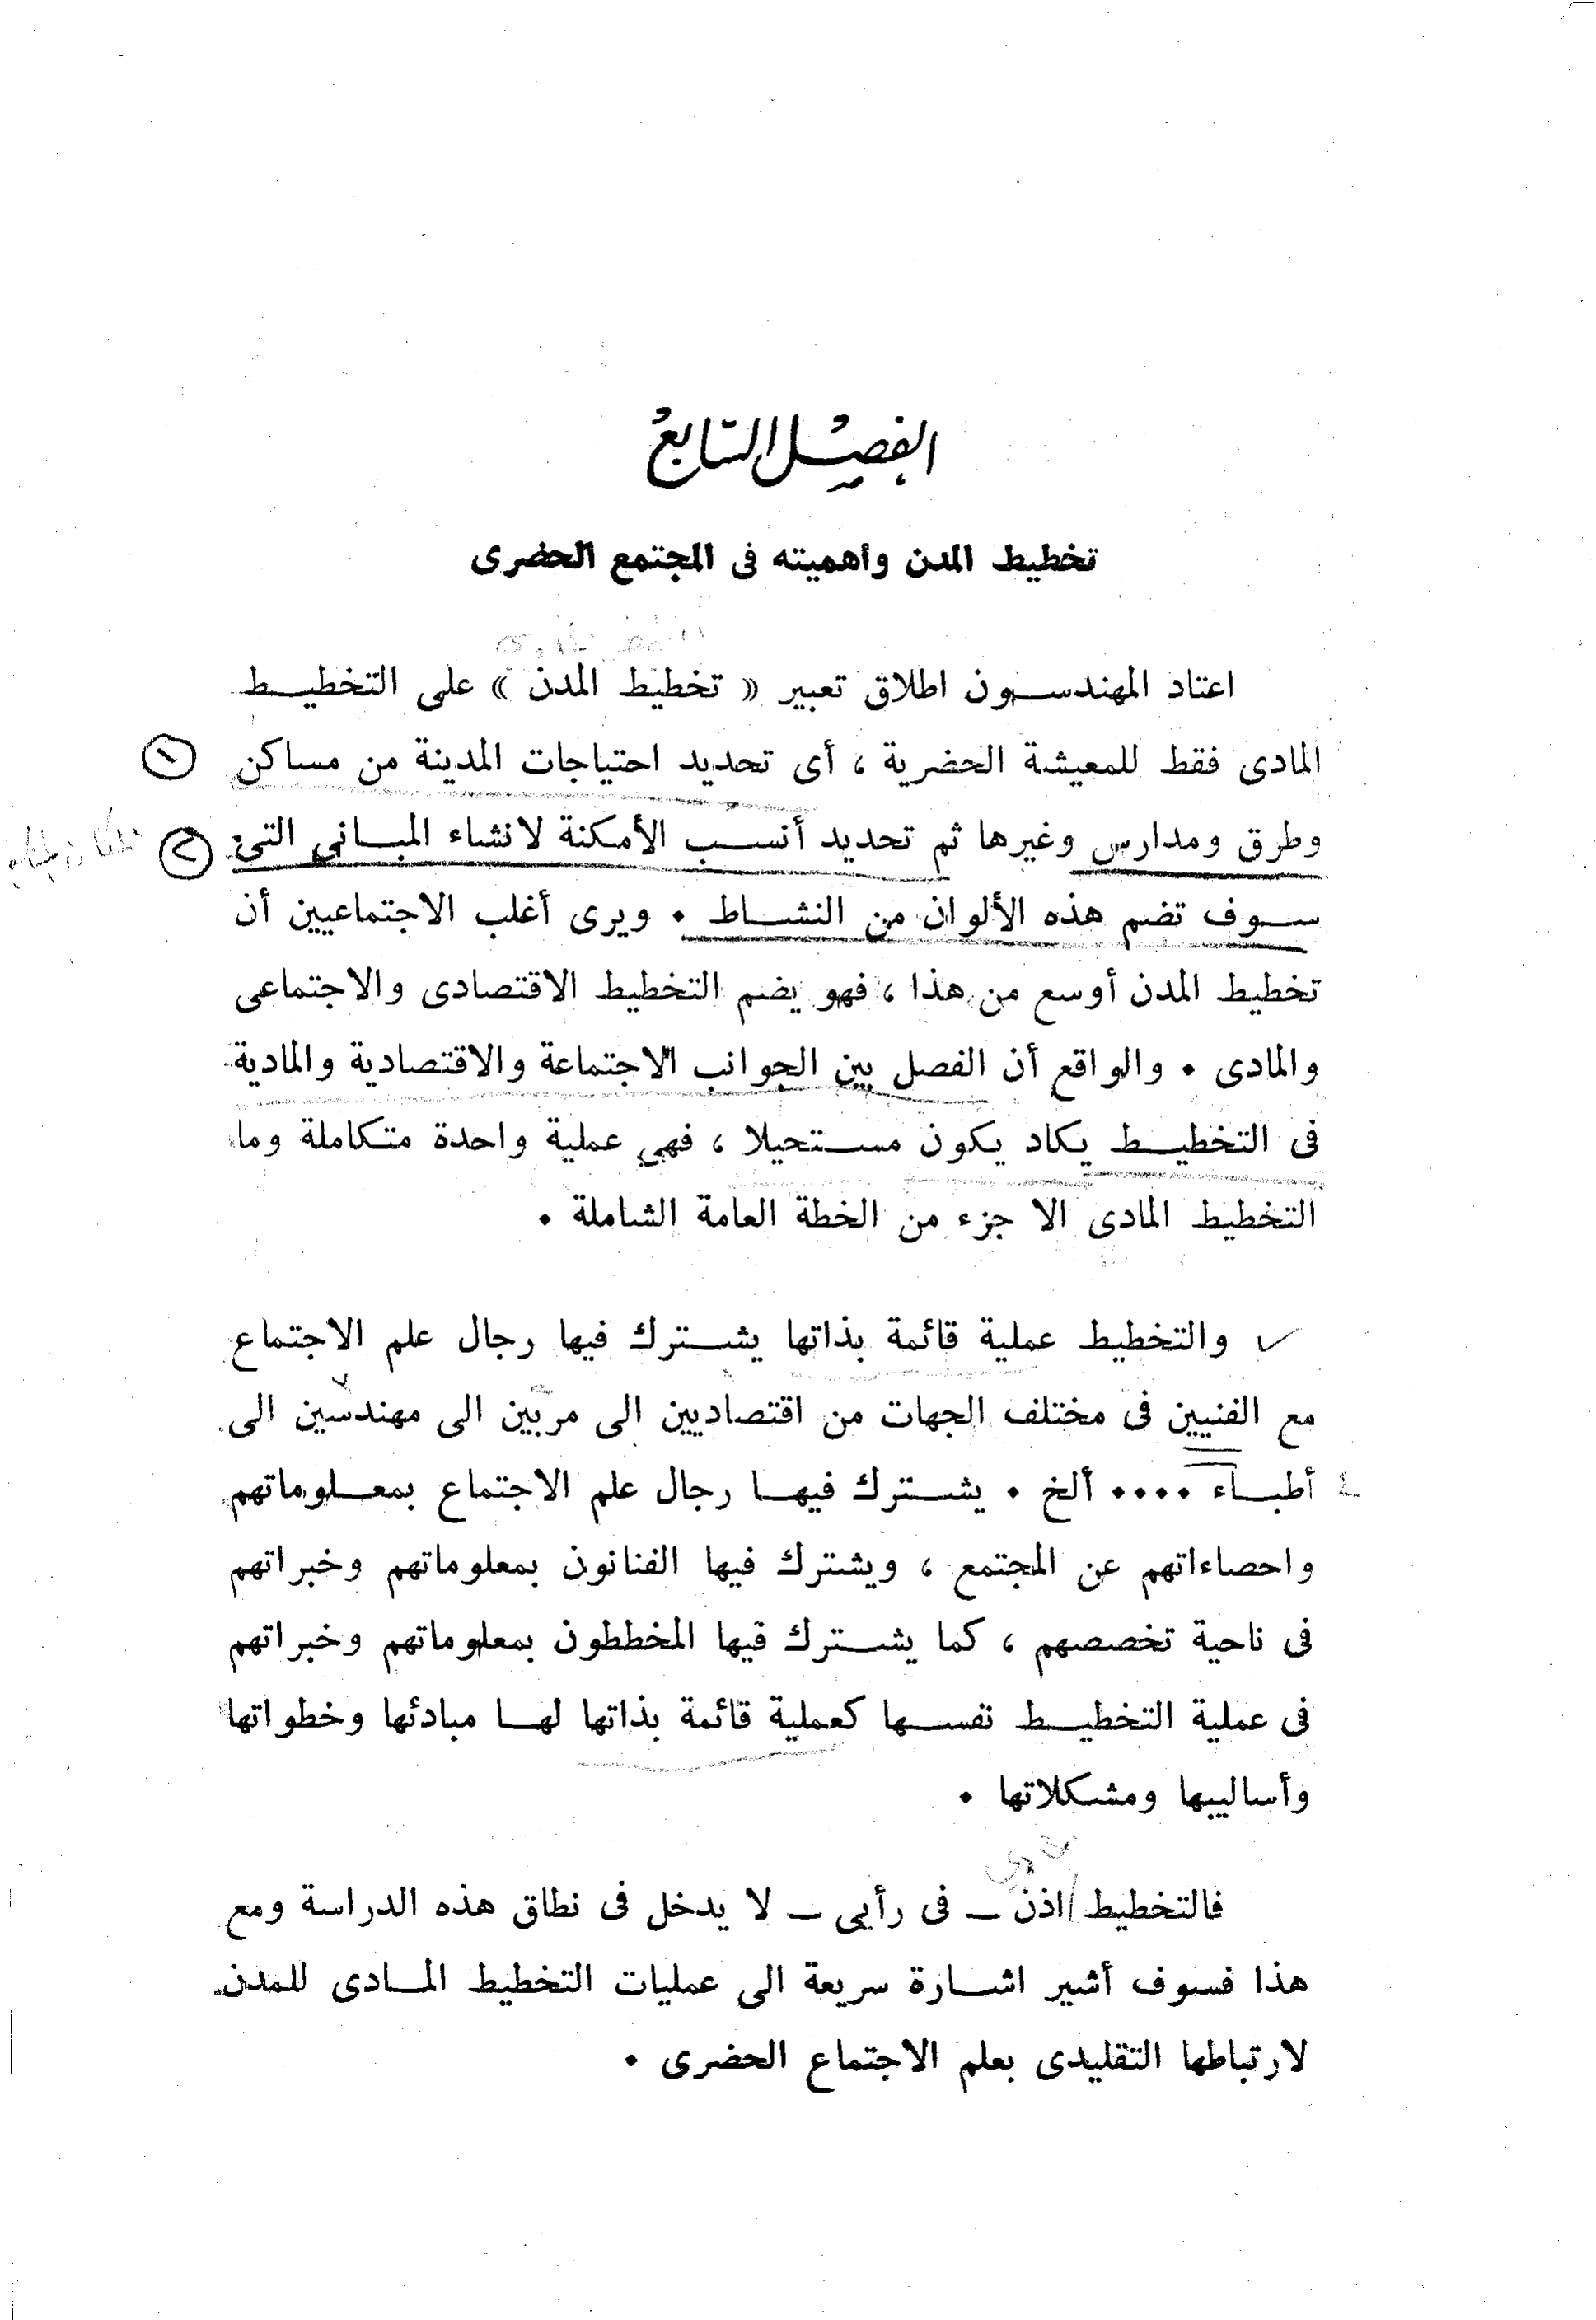 الفصل السابع
تخطيط المدن وأهميته فى المجتمع الحضرى
اعتاد المهندسون اطلاق تعبير « تخطيط المدن » على التخطيط
المادى فقط للمعيشة الحضرية ، أى تحديد احتياجات المدينة من مساكن
١
وطرق ومدارس وغيرها ثم تحديد أنسب الأمكنة لانشاء المبانى التى
٢
سوف تضم هذه الألوان من النشاط • ويرى أغلب الاجتماعيين أن
تخطيط المدن أوسع من هذا ، فهو يضم التخطيط الاقتصادى والاجتماعى
والمادى • والواقع أن الفصل بين الجوانب الاجتماعة والاقتصادية والمادية
فى التخطيط يكاد يكون مستحيلا ، فهى عملية واحدة متكاملة وما
التخطيط المادى الا جزء من الخطة العامة الشاملة •
والتخطيط عملية قائمة بذاتها يشترك فيها رجال علم الاجتماع
مع الفنيين فى مختلف الجهات من اقتصاديين الى مربين الى مهندسين الى
أطباء •••• ألخ • يشترك فيها رجال علم الاجتماع بمعلوماتهم
واحصاءاتهم عن المجتمع ، ويشترك فيها الفنانون بمعلوماتهم وخبراتهم
فى ناحية تخصصهم ، كما يشترك فيها المخططون بمعلوماتهم وخبراتهم
فى عملية التخطيط نفسها كعملية قائمة بذاتها لها مبادئها وخطواتها
وأساليبها ومشكلاتها •
فالتخطيط اذن – فى رأيى – لا يدخل فى نطاق هذه الدراسة ومع
هذا فسوف أشير اشارة سريعة الى عمليات التخطيط المادى للمدن
لارتباطها التقليدى بعلم الاجتماع الحضرى •